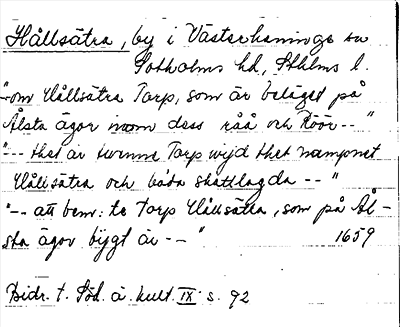 Hållsätra, by i Västerhaninge sn
Sotholms hd, Sthlms l.
"-om Hållsätra Torp, som är beläget på
Ålsta ägor inom dess råå och Röör--"
"--- thet är twenne Torp wijd thet nampnet
Hållsätra och båda skattlagda --"
"-- att bem:te Torp Hållsätra, som på Ål-
sta ägor bijgt är --" 1659
Bidr. t. Söd. ä. kult. IX s. 92